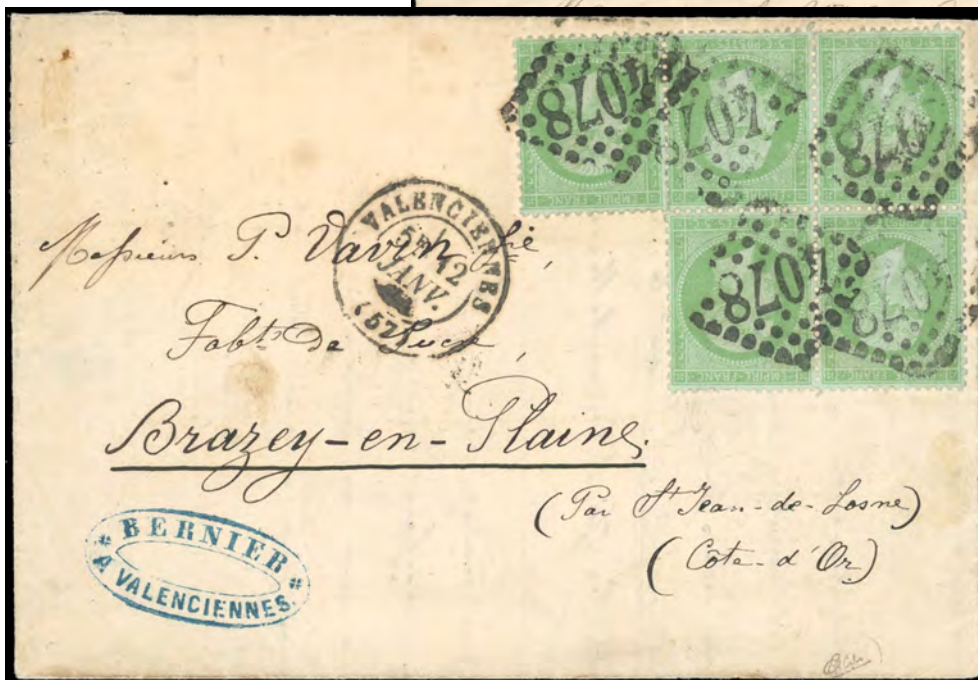 4078 4078 4078
4078 4078
EMPIRE · FRANC
VALENCIENNES
5E
12
JANV.
(57)
Messieurs P. Vavin
Fabts de Sucre,
Brazey-en-Plaine.
(Par St Jean-de-Losne)
(Côte-d'Or)
* BERNIER *
A VALENCIENNES.